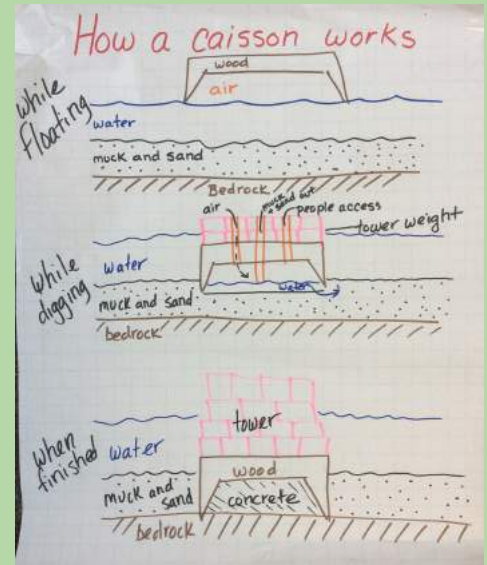 How a caisson works
while floating
wood
air
water
muck and sand
Bedrock
while digging
air
muck & sand out
people access
tower weight
water
water
muck and sand
bedrock
when finished
tower
water
wood
muck and sand
concrete
bedrock